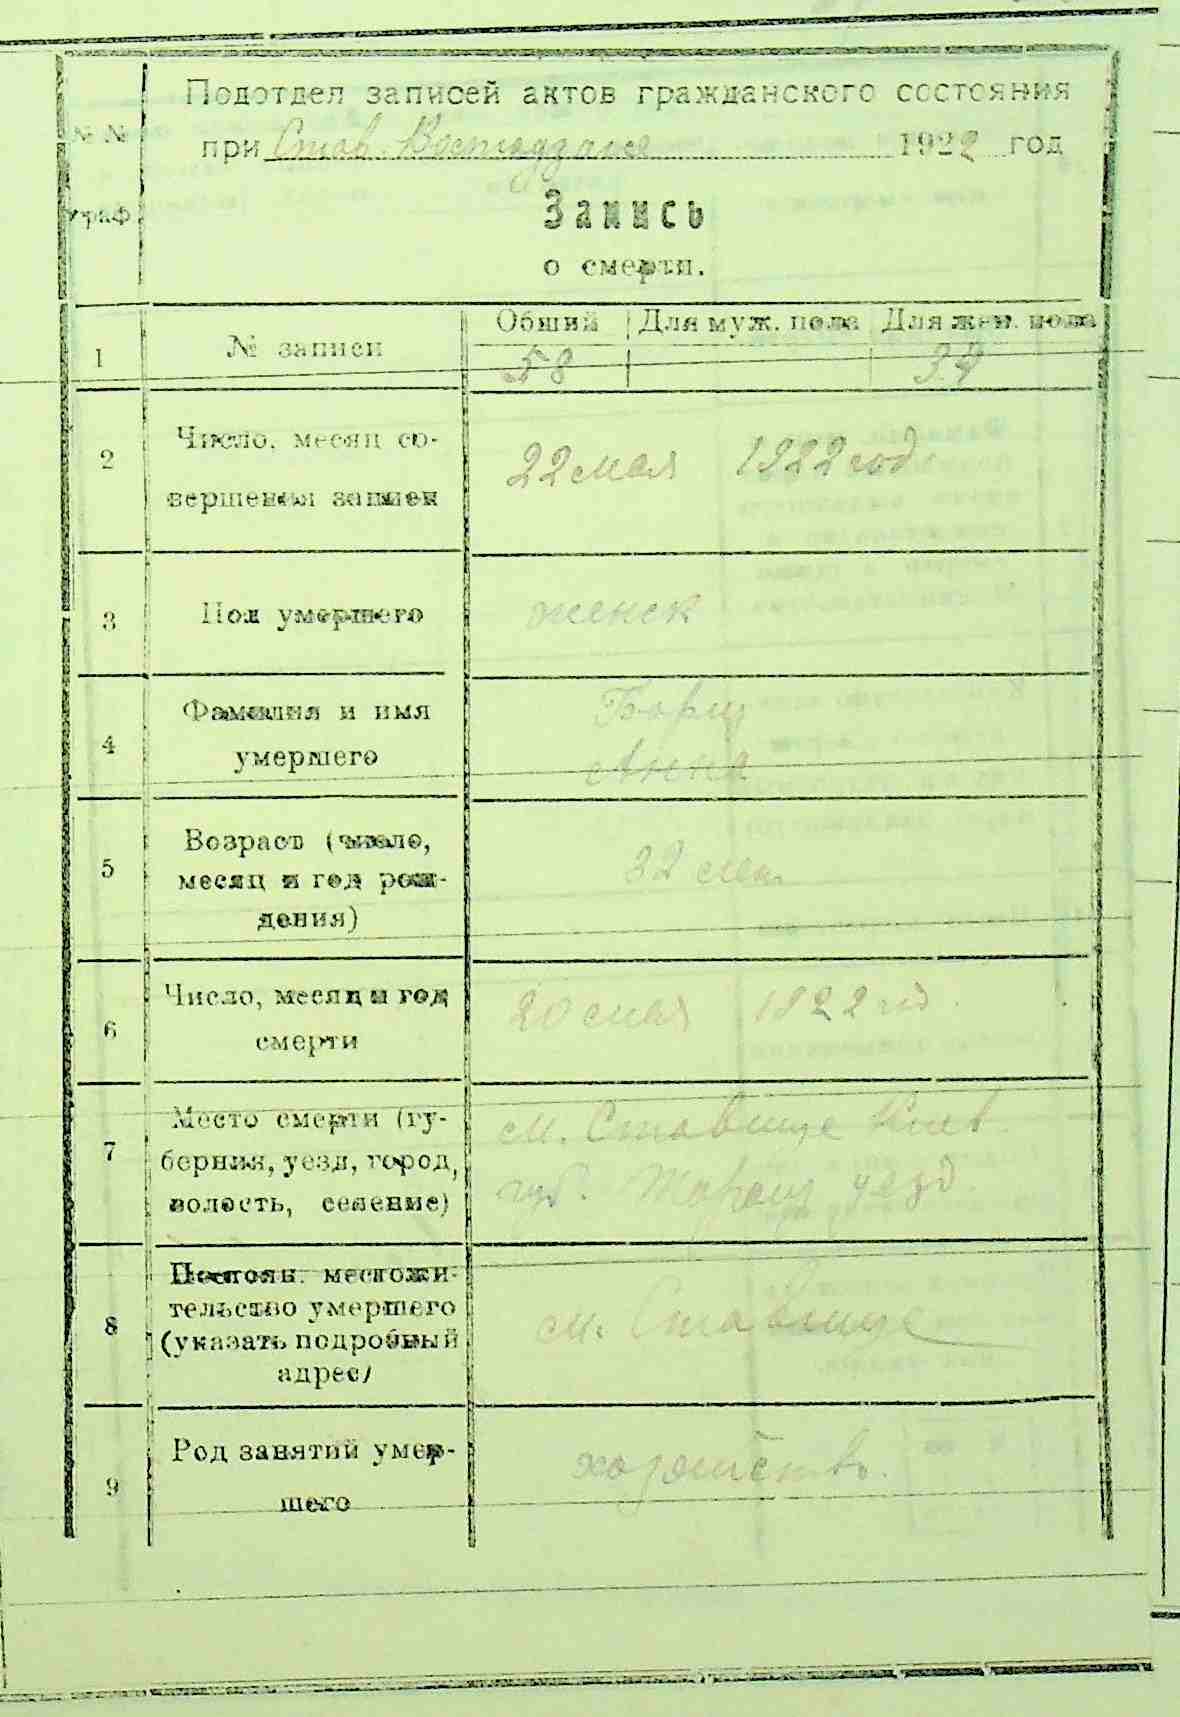 Подотдел записей актов гражданского состояния
№ № при Став. 1922 год
граф
Запись
о смерти.
1 № записи Общий Для муж. пола Для жен. пола
58
2 Число, месяц со-
вершения записи
22 мая 1922 год
3 Пол умершего женск
4 Фамилия и имя
умершего
Борщ
Анна
5 Возраст (число,
месяц и год рож-
дения)
32
6 Число, месяц и год
смерти
20 мая 1922 год
7 Место смерти (гу-
берния, уезд, город,
волость, селение)
м. Ставище Киев.
губ. Таращ уезд.
8 Постоян. местожи-
тельство умершего
(указать подробный
адрес)
м. Ставище
9 Род занятий умер-
шего
хозяйство.